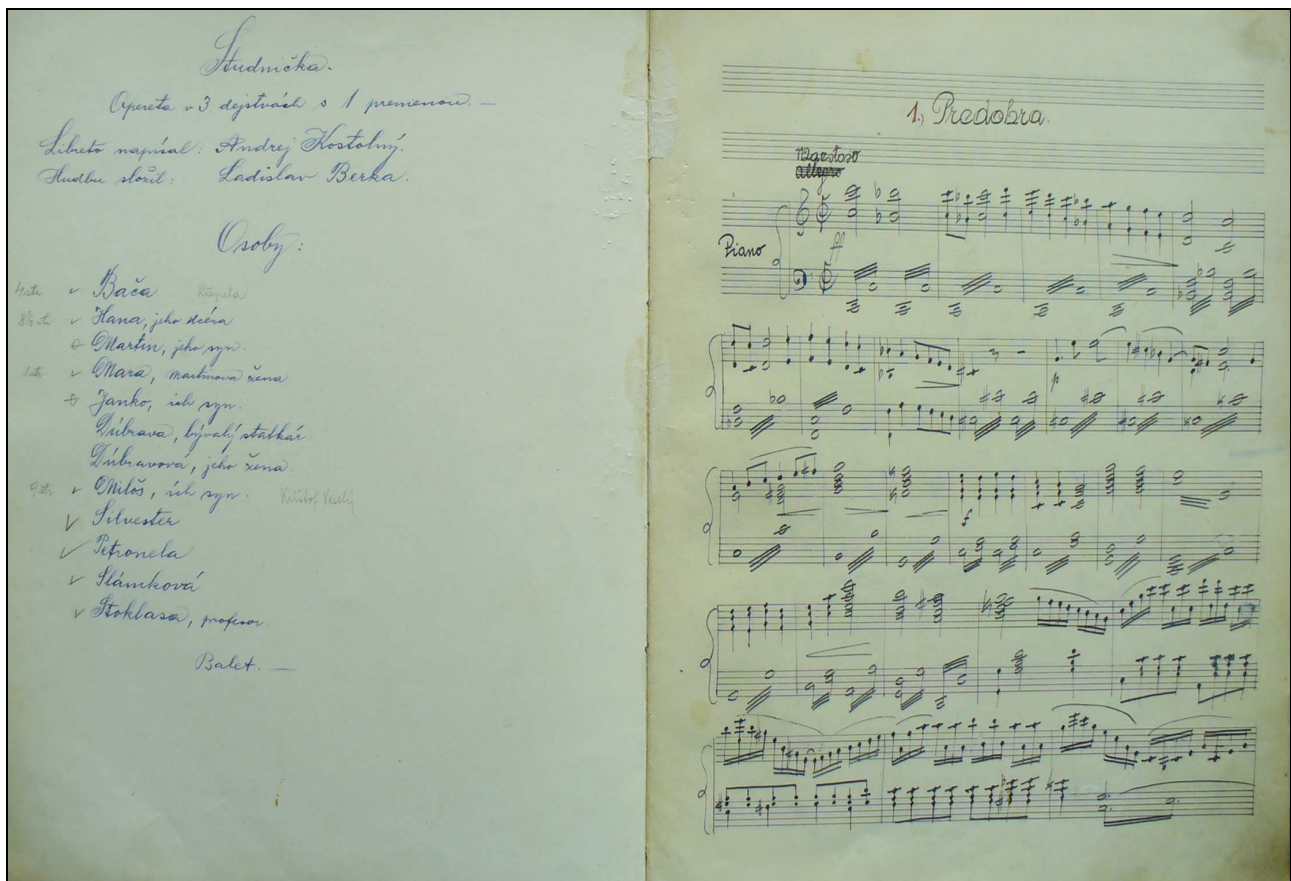 Studnička.
Opereta v 3 dejstvách s 1 premenou. —
Libreto napísal: Andrej Kostolný.
Hudbu složil: Ladislav Berka.
Osoby:
v Bača
v Hana, jeho dcéra
Martin, jeho syn.
v Mara, Martinova žena
Janko, ich syn.
Dúbrava, bývalý statkár
Dúbravová, jeho žena.
v Miloš, ich syn. Krištof Veselý
v Silvester
v Petronela
v Slámková
v Stoklasa, profesor.
Balet. —
1.) Predohra.
Maestoso
allegro
Piano
ff
p
f